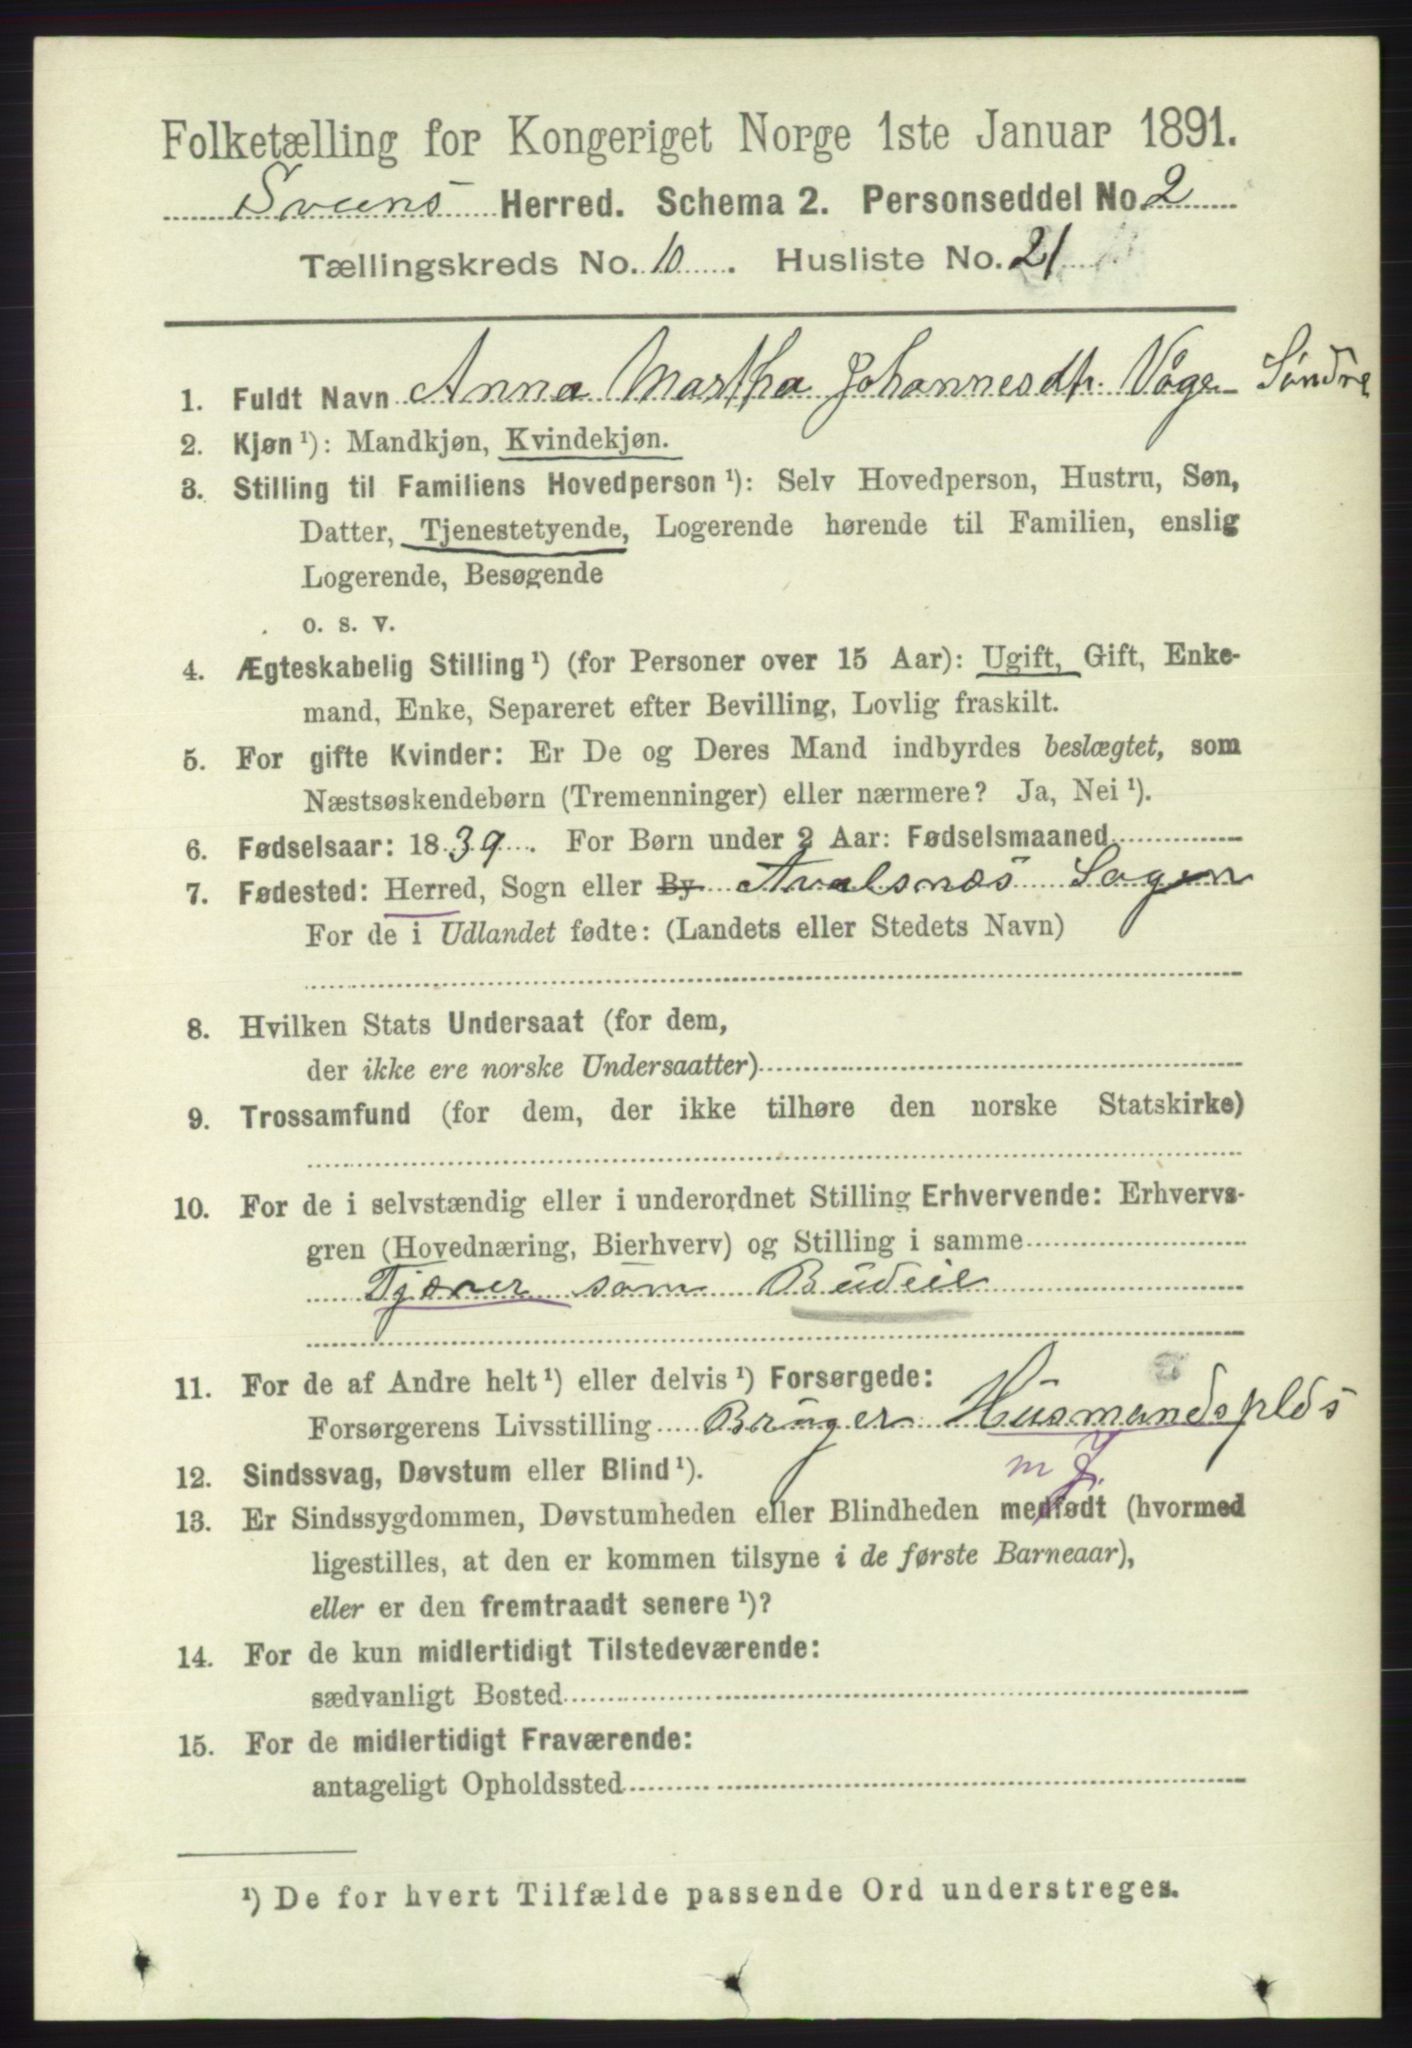 Folketælling for Kongeriget Norge 1ste Januar 1891.
Sveens Herred. Schema 2. Personseddel No. 2
Tællingskreds No. 10. Husliste No. 21
1. Fuldt Navn Anna Martha Johannesdtr. Våge Söndre
2. Kjøn ¹): Mandkjøn, Kvindekjøn.
3. Stilling til Familiens Hovedperson ¹): Selv Hovedperson, Hustru, Søn,
Datter, Tjenestetyende, Logerende hørende til Familien, enslig
Logerende, Besøgende
o. s. v.
4. Ægteskabelig Stilling ¹) (for Personer over 15 Aar): Ugift, Gift, Enke-
mand, Enke, Separeret efter Bevilling, Lovlig fraskilt.
5. For gifte Kvinder: Er De og Deres Mand indbyrdes beslægtet, som
Næstsøskendebørn (Tremenninger) eller nærmere? Ja, Nei ¹).
6. Fødselsaar: 1839. For Børn under 2 Aar: Fødselsmaaned
7. Fødested: Herred, Sogn eller By Avalsnæs Sogen
For de i Udlandet fødte: (Landets eller Stedets Navn)
8. Hvilken Stats Undersaat (for dem,
der ikke ere norske Undersaatter)
9. Trossamfund (for dem, der ikke tilhøre den norske Statskirke)
10. For de i selvstændig eller i underordnet Stilling Erhvervende: Erhvervs-
gren (Hovednæring, Bierhverv) og Stilling i samme
Tjæner som Büdeie
11. For de af Andre helt ¹) eller delvis ¹) Forsørgede:
Forsørgerens Livsstilling Brüger Hüsmandsplds
m J.
12. Sindssvag, Døvstum eller Blind ¹).
13. Er Sindssygdommen, Døvstumheden eller Blindheden medfødt (hvormed
ligestilles, at den er kommen tilsyne i de første Barneaar),
eller er den fremtraadt senere ¹)?
14. For de kun midlertidigt Tilstedeværende:
sædvanligt Bosted
15. For de midlertidigt Fraværende:
antageligt Opholdssted
¹) De for hvert Tilfælde passende Ord understreges.